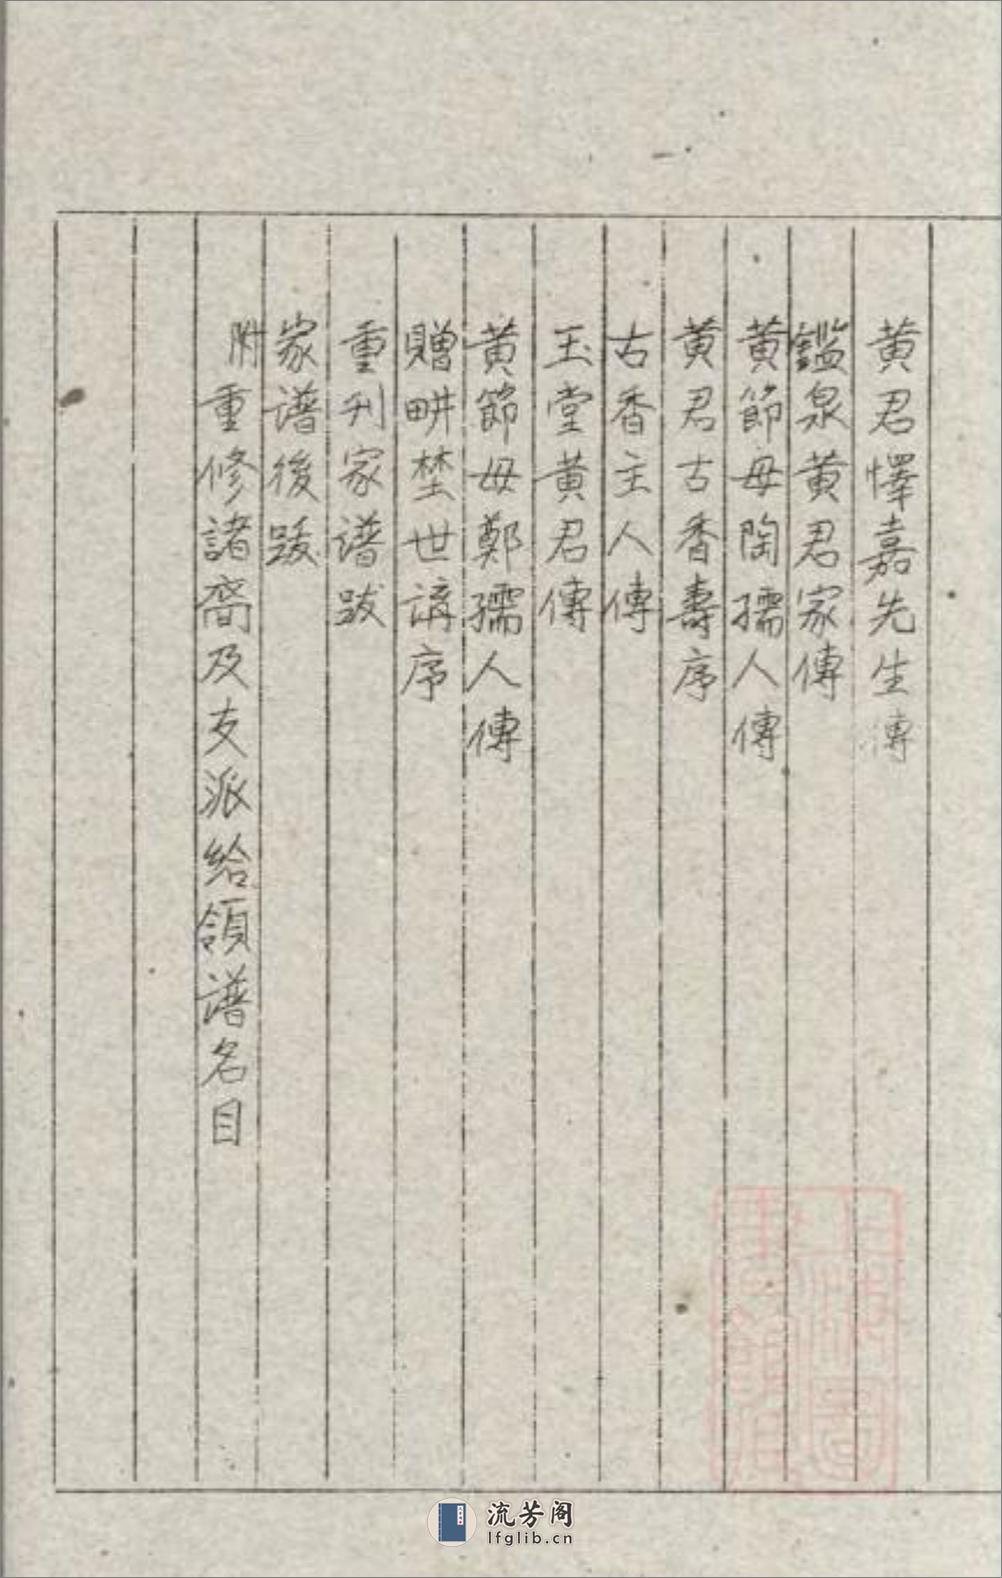 黄君懌嘉先生傳
鑑泉黄君家傳
黄節母陶孺人傳
黄君古香壽序
古香主人傳
玉堂黄君傳
黄節母鄭孺人傳
贈畊埜世講序
重刊家譜跋
家譜後跋
附重修諸裔及支派給領譜名目
流芳阁
lfglib.cn